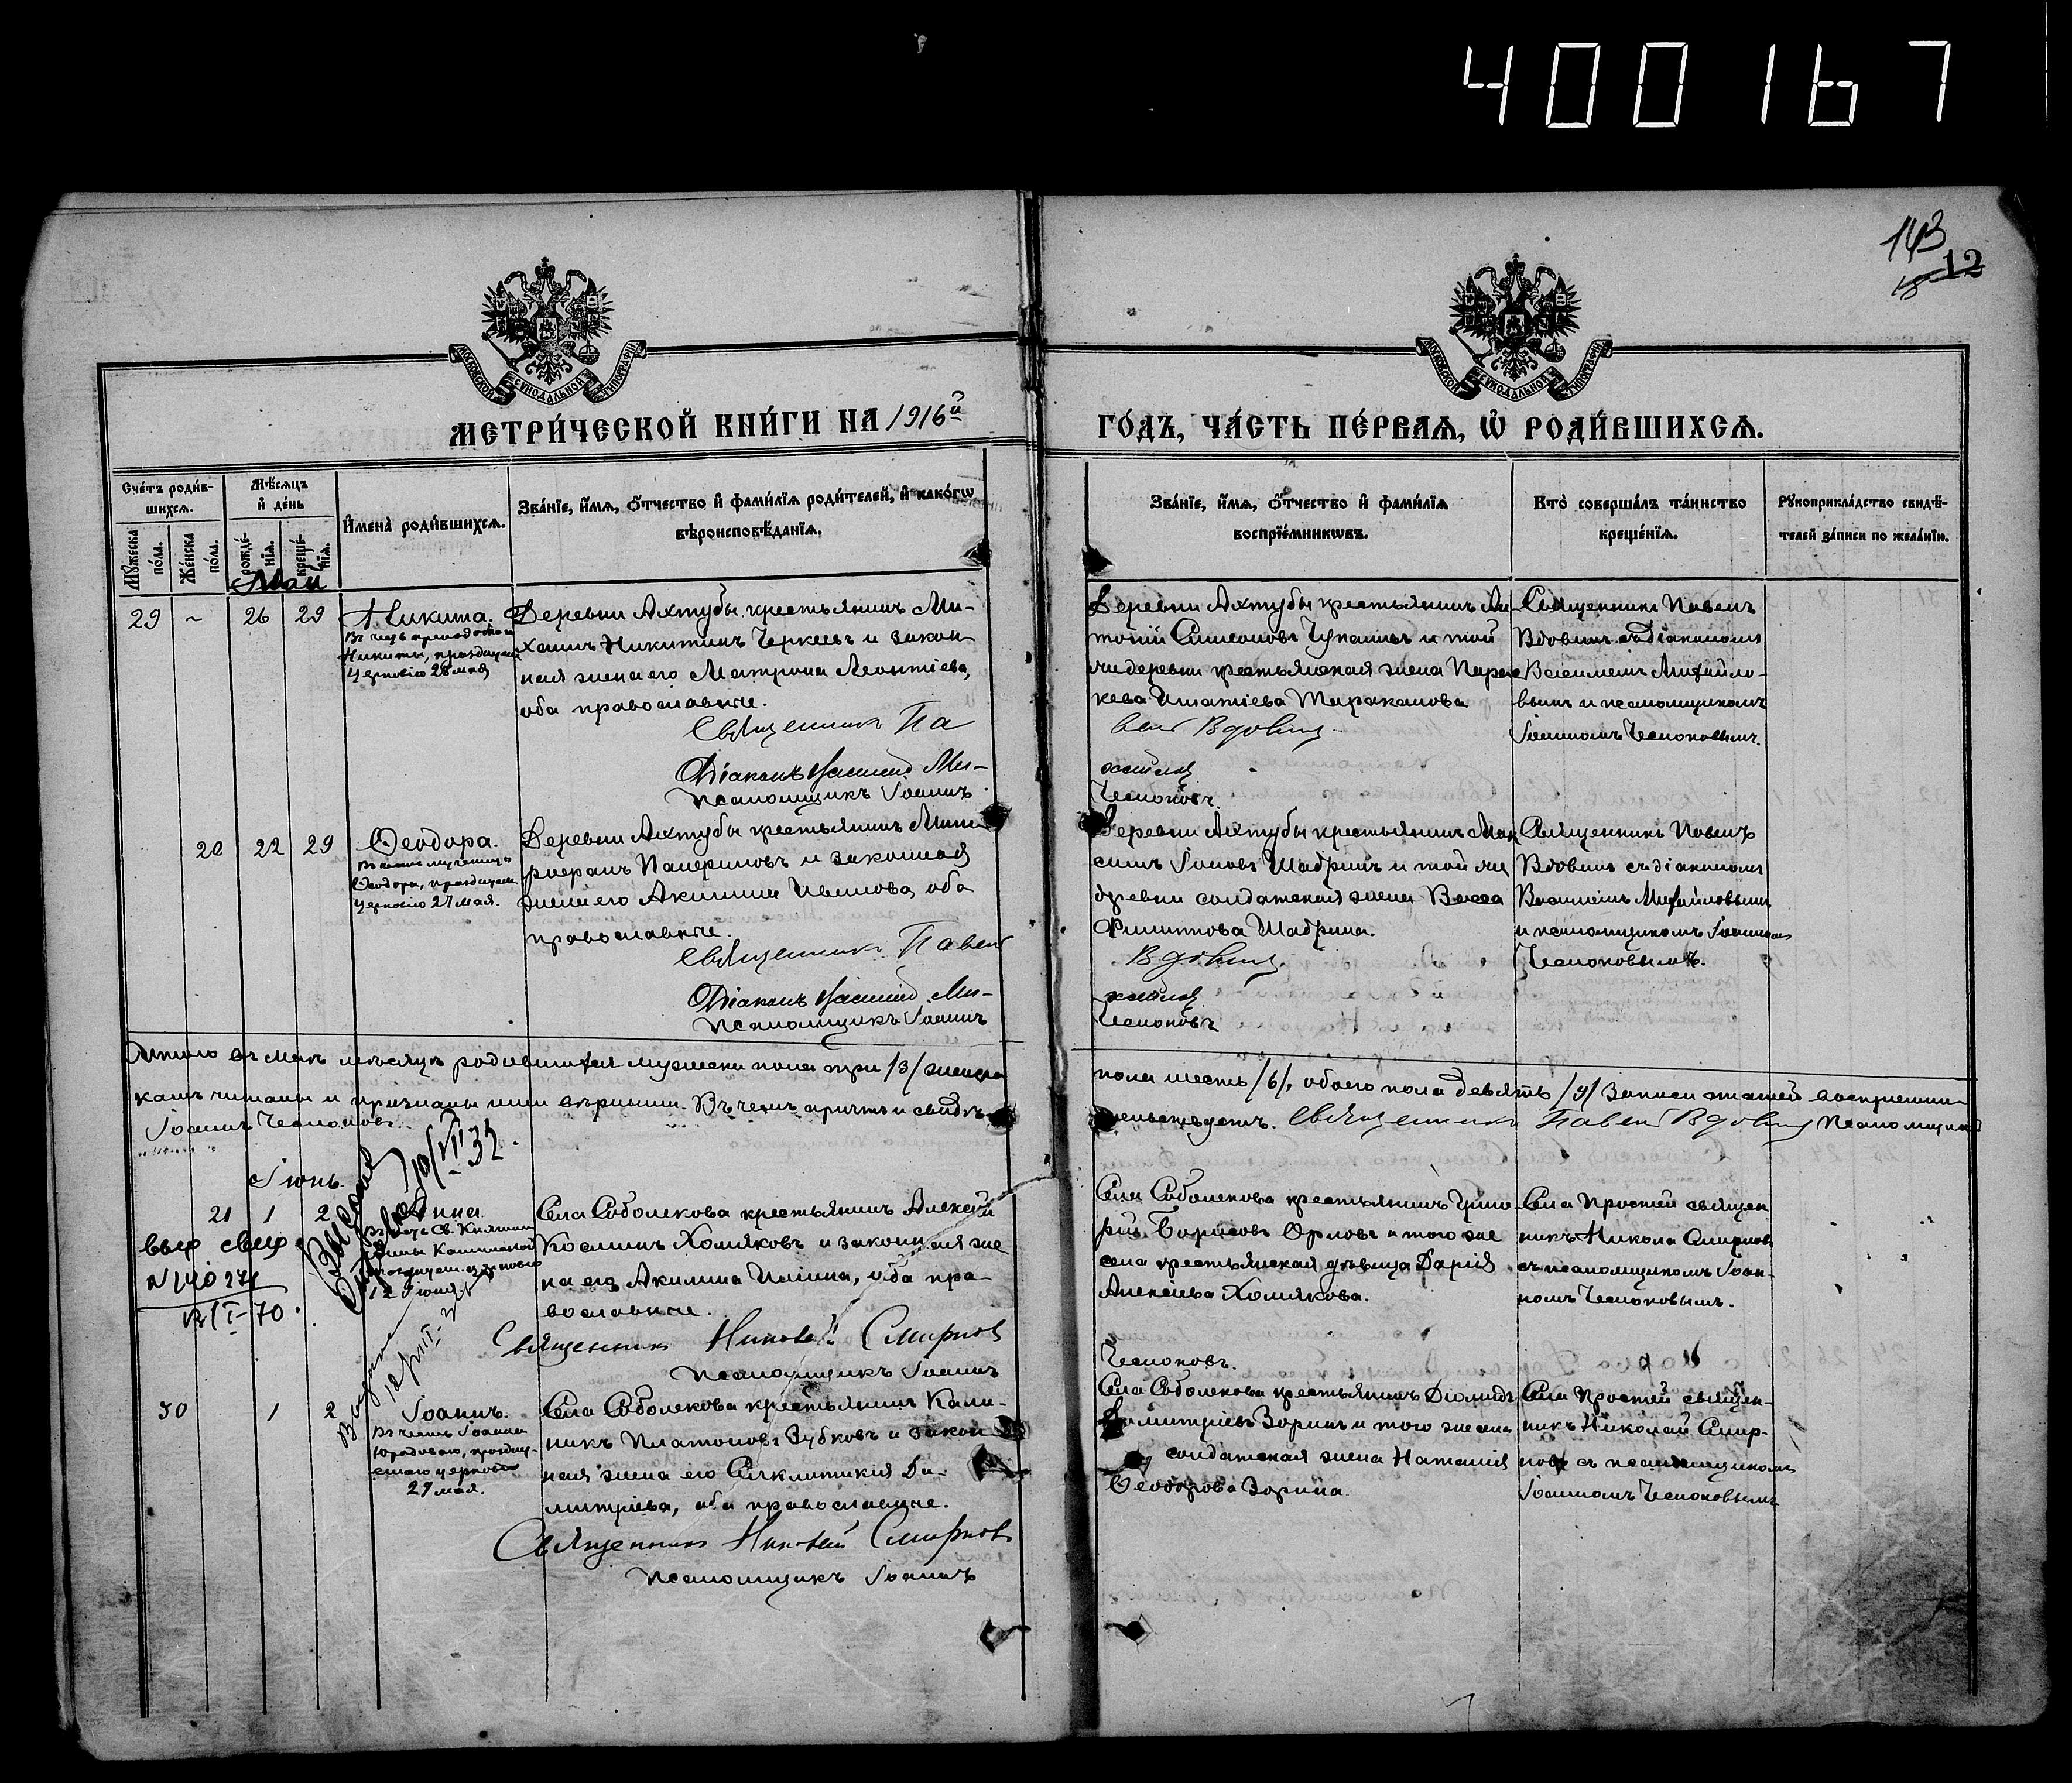 400167
143
12
МОСКОВСКОЙ СѴНОДАЛЬНОЙ ТИПОГРАФІИ
МОСКОВСКОЙ СѴНОДАЛЬНОЙ ТИПОГРАФІИ
МЕТРИ́ЧЕСКОЙ КНИ́ГИ НА 1916й
ГО́ДЪ, ЧА́СТЬ ПЕ́РВАѦ, Ѡ҆ РОДИ́ВШИХСѦ.
Сче́тъ роди́в-
шихсѧ.
Мꙋ́жеска по́ла.
Же́нска по́ла.
Мѣ́сѧцъ и҆ де́нь
рожде́-нїѧ.
креще́-нїѧ.
И҆мена̀ роди́вшихсѧ.
Зва́нїе, и҆́мѧ, ѻ҆́тчество и҆ фами́лїѧ роди́телей, и҆ како́гѡ
вѣроисповѣ́данїѧ.
Зва́нїе, и҆́мѧ, ѻ҆́тчество и҆ фами́лїѧ
воспрїе́мникѡвъ.
Кто̀ соверша́лъ та́инство
креще́нїѧ.
Рꙋкоприкла́дство свидѣ́-
телей за́писи по жела́нїю.
Май
29 ~ 26 29 Никита.
Въ честь преподобнаго
Никиты, празднуем.
Церковію 28 мая
Деревни Ахтубы крестьянинъ Ми-
хаилъ Никитинъ и закон-
ная жена его Матрона Леонтіева,
оба православные.
Священникъ Па
Діаконъ Василій Ми-
Псаломщикъ Іоаннъ
Деревни Ахтубы крестьянинъ Ан-
тоній Симеоновъ и той
же деревни крестьянская жена Параске
кева Игнатіева Тараканова
вел Вдовинъ
хайловъ
Чесноковъ.
Священникъ Павелъ
Вдовинъ съ діакономъ
Василіемъ Михайло-
вымъ и псаломщикомъ
Іоанномъ Чесноковымъ.
20 22 29 Ѳеодора.
Въ честь мученицы
Ѳеодоры, празднуем.
Церковію 27 мая.
Деревни Ахтубы крестьянинъ Мит
рофанъ и законная
жена его Акилина Иванова, оба
православные.
Священникъ Павел
Діаконъ Василій Ми-
Псаломщикъ Іоаннъ
Деревни Ахтубы крестьянинъ Мак
симъ Іоновъ Шабринъ и той же
деревни солдатская жена Васса
Филиппова Шабрина.
Вдовинъ
хайловъ
Чесноковъ
Священникъ Павелъ
Вдовинъ съ діакономъ
Василіемъ Михайловымъ
и псаломщикомъ Іоанномъ
Чесноковымъ.
Итого въ маѣ мѣсяцѣ родившихся мужеска пола три /3/ женска
пола шесть /6/, обоего пола девять /9/ Записи статей воспріемни-
камъ читаны и признаны ими вѣрными. Въ чемъ причтъ и свидѣ-
тельствуетъ. Священникъ Павел Вдовинъ Псаломщикъ
Іоаннъ Чесноковъ.
Іюнь.
21 1 2 Анна.
Въ честь Св. Княгини
Анны Кашинской
празднуем. церковію
12 Іюня.
10/VII 32.
№ 140 271
12/I-70.
Села Соболекова крестьянинъ Алексѣй
Косминъ Хомяковъ и законная же
на его Акилина Ильина, оба пра-
вославные.
Священник Николай Смирнов
Псаломщикъ Іоаннъ
Села Соболекова крестьянинъ Григо
рій Борисовъ Орловъ и того же
села крестьянская дѣвица Дарія
Алексіева Хомякова.
Чесноковъ.
Села Простей священ
никъ Никола Смирновъ
съ псаломщикомъ Іоан-
номъ Чесноковымъ.
30 1 2 Іоаннъ.
Въ честь Іоанна
Юродиваго, праздну-
емаго церковію
29 мая.
Села Соболекова крестьянинъ Кали-
никъ Платоновъ Зубковъ и закон
ная жена его Синклитикія Ди-
митріева, оба православные.
Священник Николай Смирнов
Псаломщикъ Іоаннъ
Села Соболекова крестьянинъ Діомидъ
Димитріевъ Зоринъ и того же села
солдатская жена Наталія
Ѳеодорова Зорина.
Села Простей священ-
никъ Николай Смир-
новъ съ псаломщикомъ
Іоанномъ Чесноковымъ